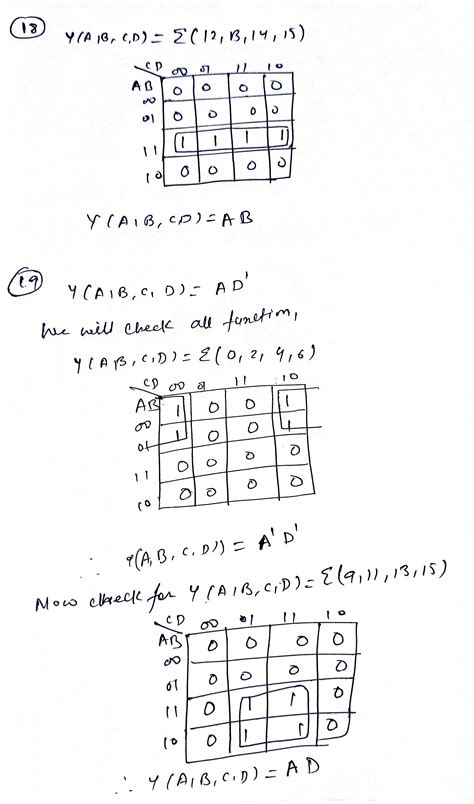 18
Y(A,B,C,D) = Σ(12,13,14,15)
CD 00 01 11 10
AB
00 0 0 0 0
01 0 0 0 0
11 1 1 1 1
10 0 0 0 0
Y(A,B,CD) = AB
19
Y(A,B,C,D) = AD'
We will check all function,
Y(A,B,C,D) = Σ(0,2,4,6)
CD 00 01 11 10
AB
00 1 0 0 1
01 1 0 0 1
11 0 0 0 0
10 0 0 0 0
∴ Y(A,B,C,D) = A'D'
Now check for Y(A,B,C,D) = Σ(9,11,13,15)
CD 00 01 11 10
AB
00 0 0 0 0
01 0 0 0 0
11 0 1 1 0
10 0 1 1 0
∴ Y(A,B,C,D) = AD